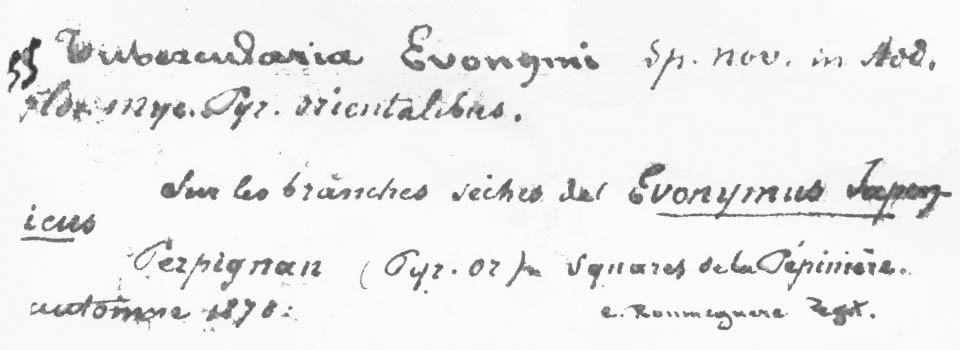 55 Tubercularia Evonymi Sp. nov. in Add.
Flor. Myc. Pyr. orientalibus.
Sur les branches sèches de l'Evonymus Japon
icus
Perpignan (Pyr. or) Squares de la Pépinière.
automne 1878.
C. Roumeguere legit.